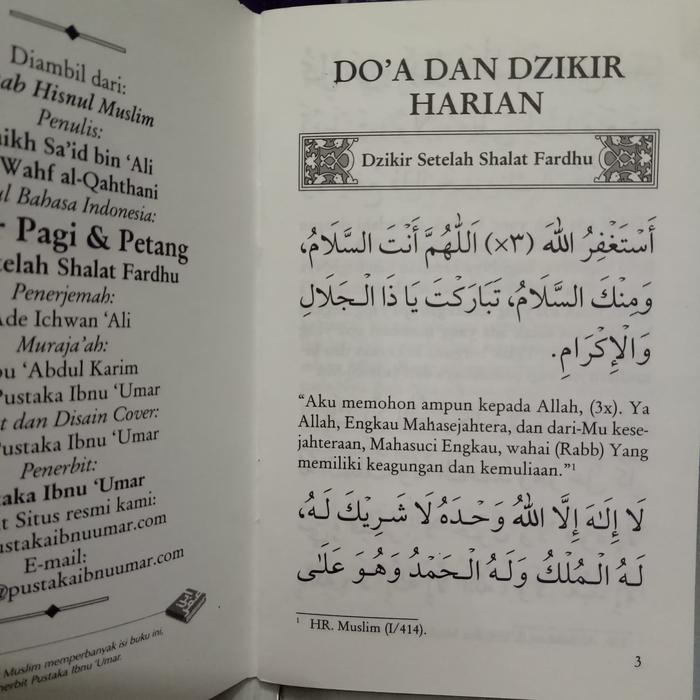 Diambil dari:
Hisnul Muslim
Penulis:
Sa'id bin 'Ali
Wahf al-Qahthani
Bahasa Indonesia:
Pagi & Petang
Shalat Fardhu
Penerjemah:
Ichwan 'Ali
Muraja'ah:
'Abdul Karim
Pustaka Ibnu 'Umar
dan Disain Cover:
Pustaka Ibnu 'Umar
Penerbit:
Ibnu 'Umar
Situs resmi kami:
E-mail:
@pustakaibnuumar.com
Muslim memperbanyak isi buku ini,
Pustaka Ibnu 'Umar.
DO'A DAN DZIKIR
HARIAN
Dzikir Setelah Shalat Fardhu
أَسْتَغْفِرُ اللهَ (×٣) اَللّٰهُمَّ أَنْتَ السَّلَامُ،
وَمِنْكَ السَّلَامُ، تَبَارَكْتَ يَا ذَا الْجَلَالِ
وَالْإِكْرَامِ.
“Aku memohon ampun kepada Allah, (3x). Ya
Allah, Engkau Mahasejahtera, dan dari-Mu kese-
jahteraan, Mahasuci Engkau, wahai (Rabb) Yang
memiliki keagungan dan kemuliaan.”¹
لَا إِلٰهَ إِلَّا اللهُ وَحْدَهُ لَا شَرِيْكَ لَهُ،
لَهُ الْمُلْكُ وَلَهُ الْحَمْدُ وَهُوَ عَلَى
¹ HR. Muslim (I/414).
3